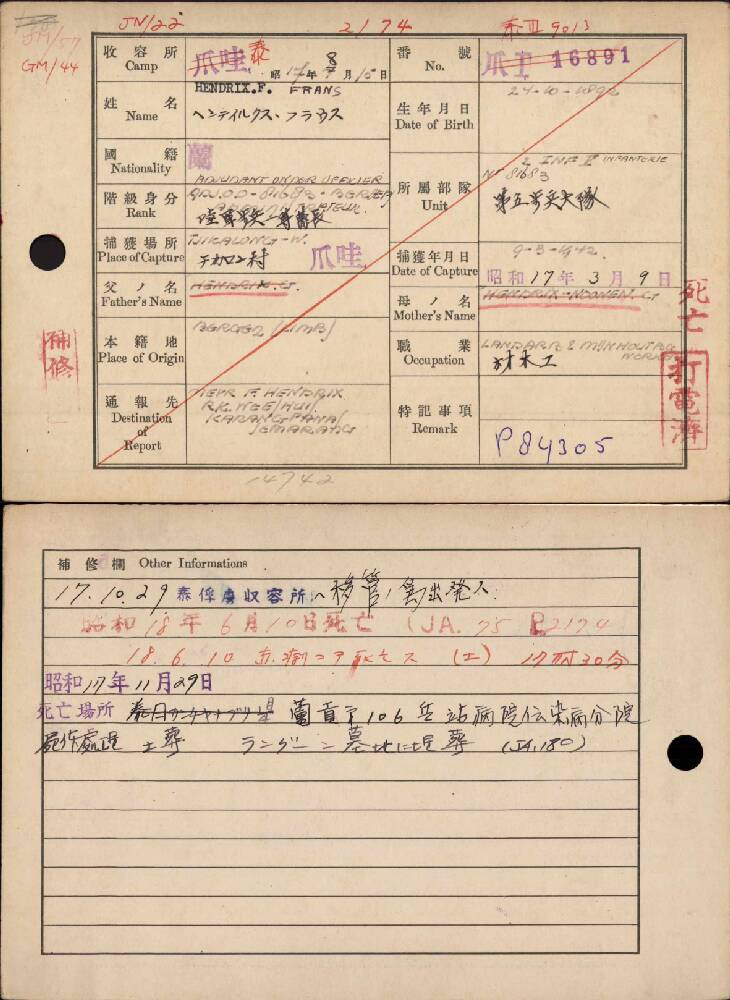 JN/22
2174
泰III 9013
GM/44
收容所 Camp
爪哇 泰
昭 17年 8月 15日
番號 No.
爪I 16891
姓名 Name
HENDRIX.F. FRANS
ヘンデイルクス・フラウス
生年月日 Date of Birth
國籍 Nationality
蘭
階級身分 Rank
ADJUDANT ONDER OFFICIER
所屬部隊 Unit
2 INF V INFANTERIE
Nº 81683
捕獲場所 Place of Capture
TJIKALONG-W.
爪哇
捕獲年月日 Date of Capture
9-3-1942.
昭和17年3月9日
父ノ名 Father's Name
HENDRIX. G.
母ノ名 Mother's Name
HENDRIX-NOONEN. G
死亡
本籍地 Place of Origin
BERGEN (LIMB)
職業 Occupation
補修
打電濟
通報先 Destination of Report
MEVR F. HENDRIX
KARANGPANAS
SEMARANG
特記事項 Remark
P84305
14742
補修欄 Other Informations
17.10.29 泰俘虜収容所へ移管ノ為出発ス.
昭和18年6月10日死亡 (JA. 75 P2174
18.6.10 赤痢ニテ死亡ス (土) 17時30分
昭和17年11月29日
死亡場所 蘭貢市106兵站病院伝染病分院
屍体處理 土葬 ラングーン墓地ニ埋葬 (JA.180)